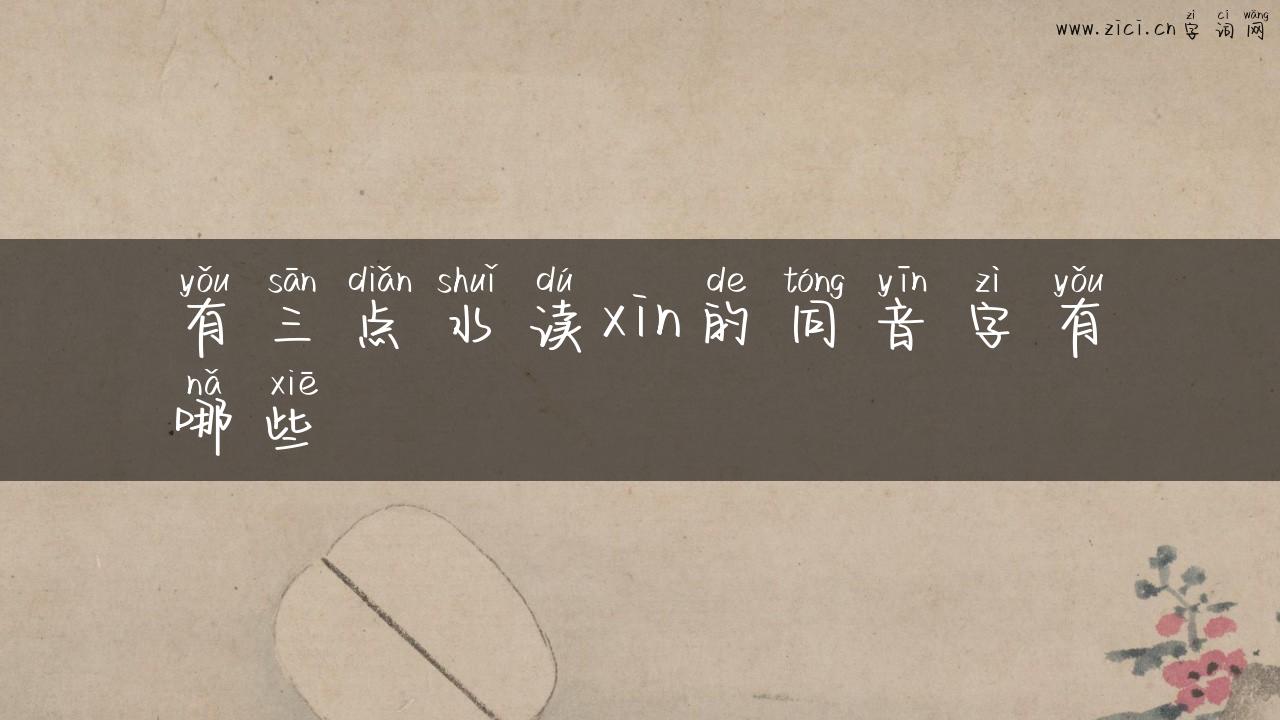 zì cí wǎng
www.zici.cn字词网
yǒu sān diǎn shuǐ dú de tóng yīn zì yǒu
有三点水读xīn的同音字有
nǎ xiē
哪些